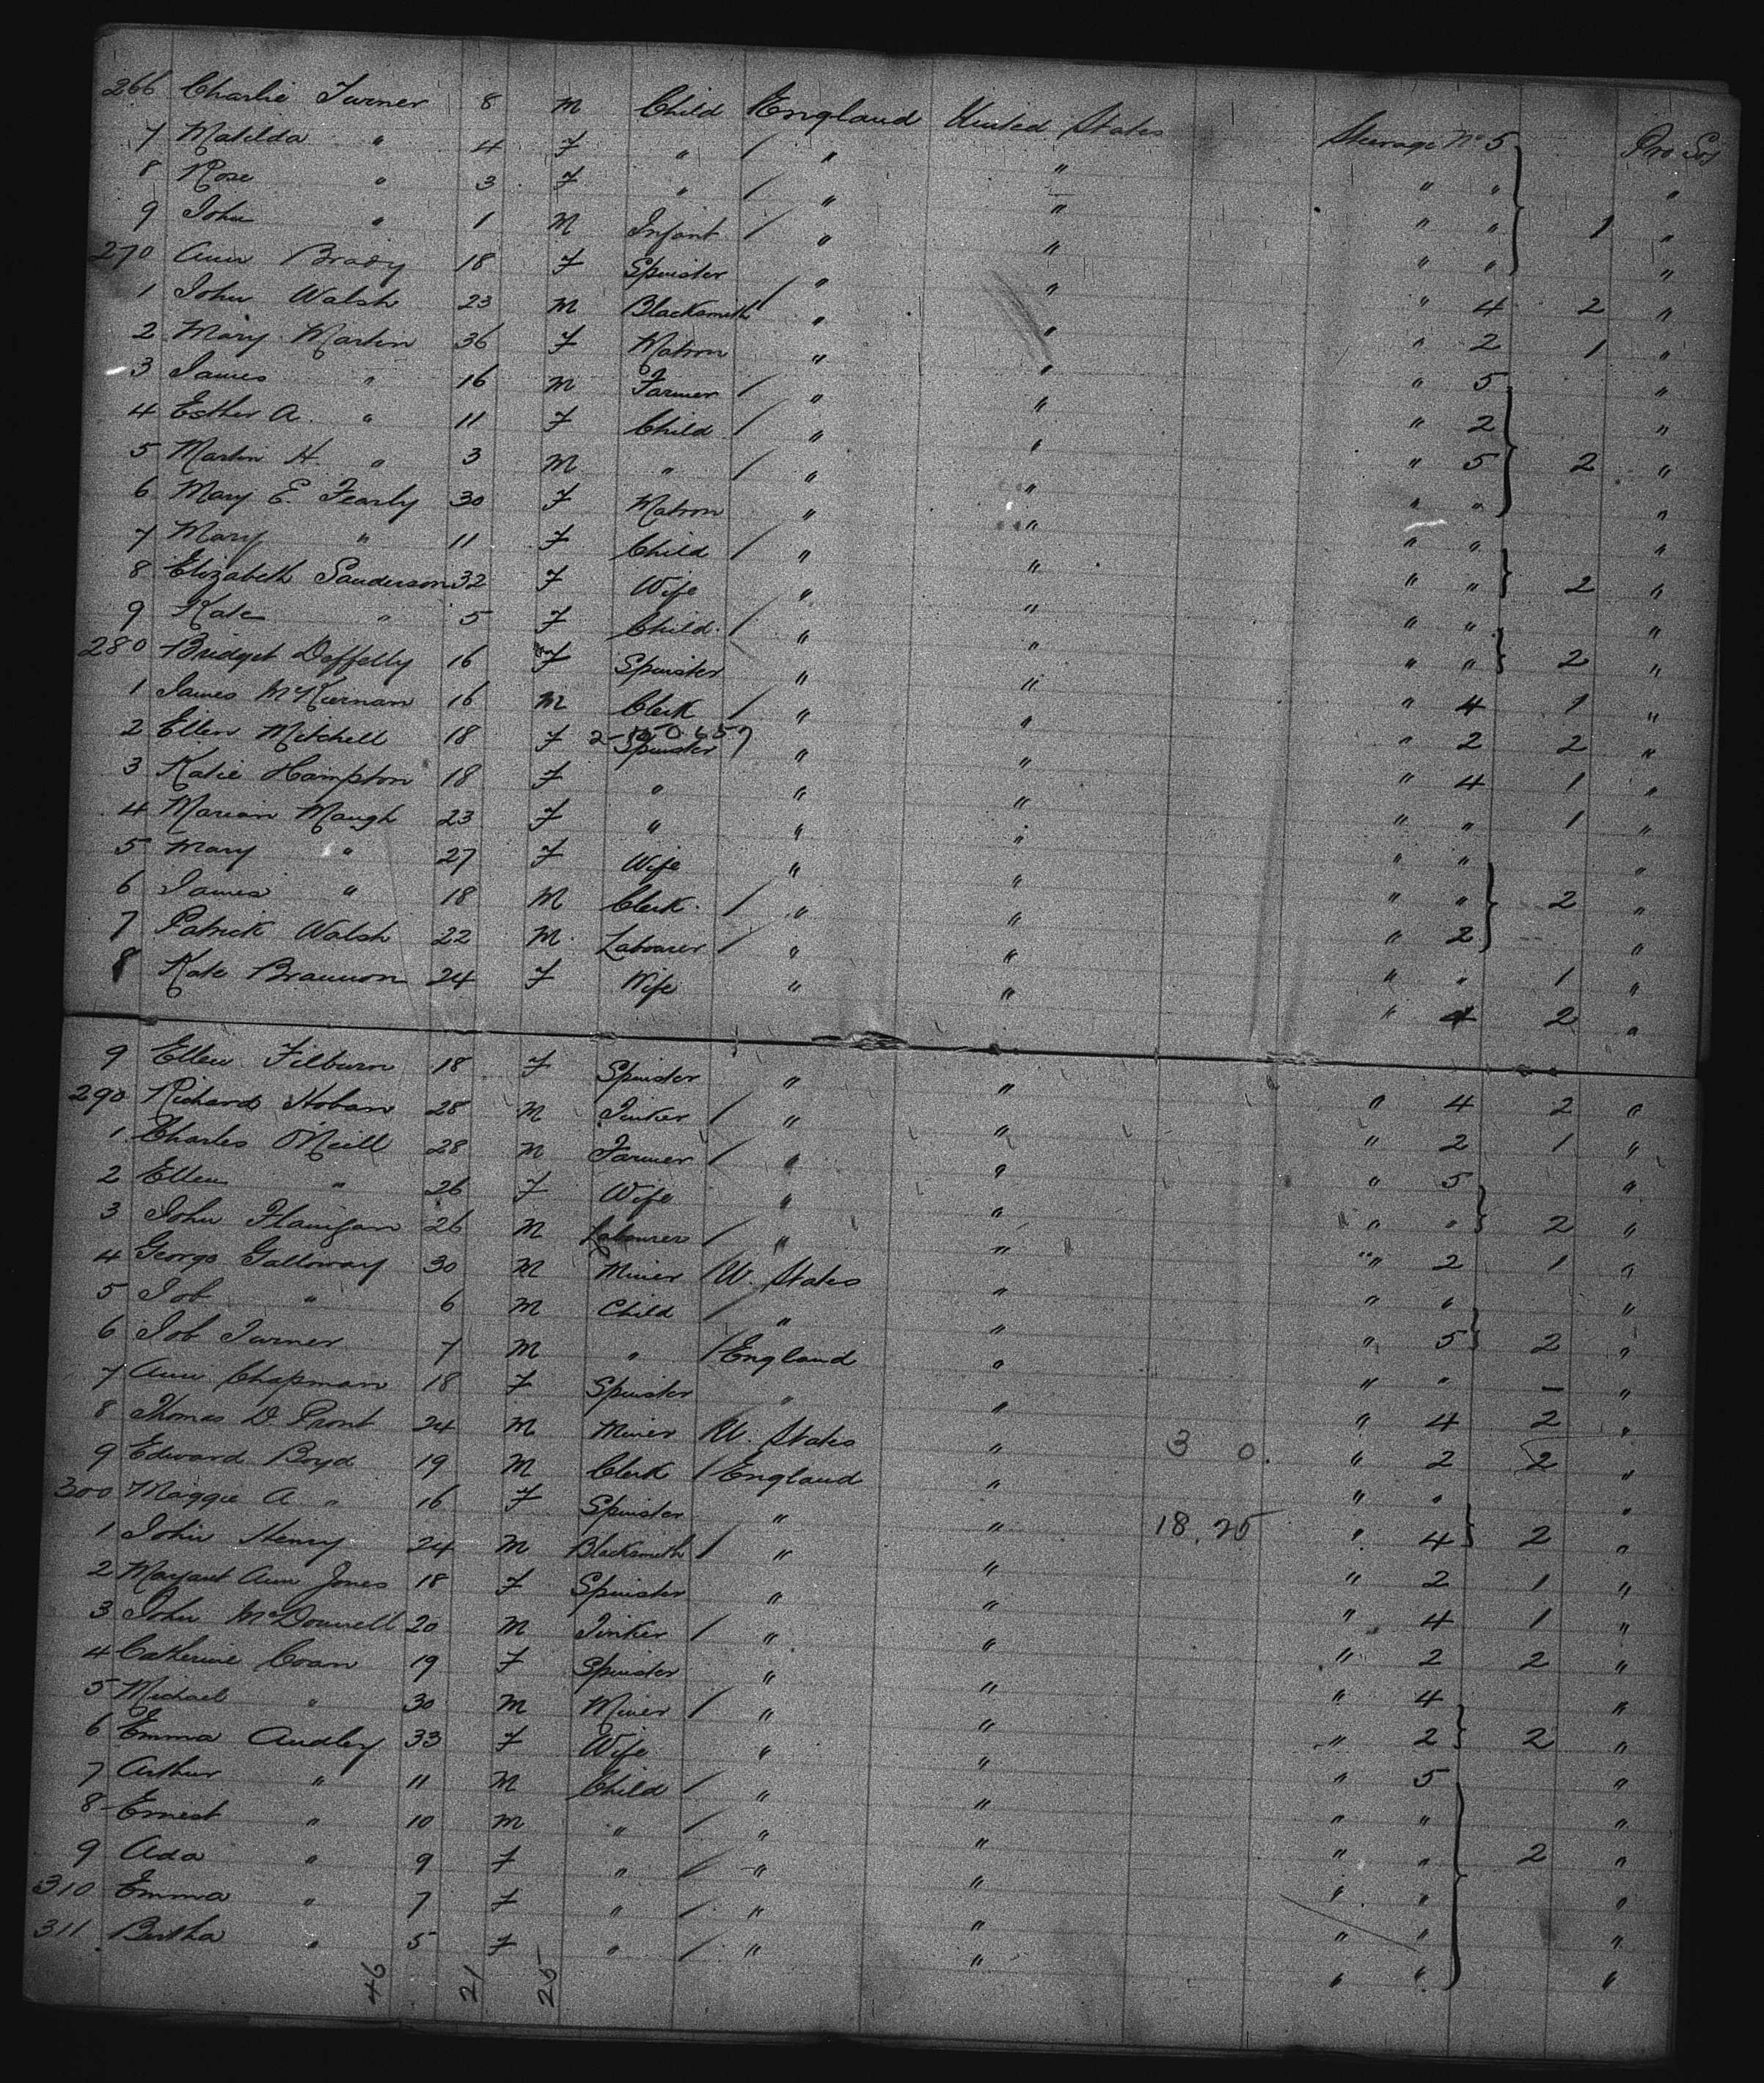 266 Charlie Turner 8 M Child / England United States Steerage No 5 Pro Soj
7 Matilda " 4 F " / " " " " "
8 Rose " 3 F " / " " " " 1 "
9 John " 1 M Infant / " " " " "
270 Ann Brady 18 F Spinster / " " " 4 2 "
1 John Walsh 23 M Blacksmith / " " " 2 1 "
2 Mary Martin 36 F Matron " " " 5 "
3 James " 16 M Farmer / " " " 2 "
4 Esther A. " 11 F Child / " " " 5 2 "
5 Martin H. " 3 M " / " " " " "
6 Mary E. Fearly 30 F Matron " " " " "
7 Mary " 11 F Child / " " " " 2 "
8 Elizabeth Sanderson 32 F Wife " " " " "
9 Kate " 5 F Child / " " " " 2 "
280 Bridget Doffelly 16 F Spinster " " " 4 1 "
1 James McKiernan 16 M Clerk / " " " 2 2 "
2 Ellen Mitchell 18 F Spinster " " " 4 1 "
3 Katie Hampton 18 F " " " " " 1 "
4 Marian Maugh 23 F " " " " " "
5 Mary " 27 F Wife " " " " 2 "
6 James " 18 M Clerk / " " " 2 "
7 Patrick Walsh 22 M Labourer / " " " " 1 "
8 Kate Brannon 24 F Wife " " " 4 2 "
9 Ellen Filburn 18 F Spinster " " " 4 2 "
290 Richard Hoban 28 M Tinker / " " " 2 1 "
1 Charles O'Neill 28 M Farmer / " " " 5 "
2 Ellen " 26 F Wife " " " " 2 "
3 John Flanigan 26 M Labourer / " " " 2 1 "
4 George Galloway 30 M Miner / U. States " " " "
5 Job " 6 M Child / " " " 5 2 "
6 Job Turner 7 M " / England " " " - "
7 Ann Chapman 18 F Spinster " " " 4 2 "
8 Thomas D. Pront 24 M Miner / U. States " 3 0. " 2 2 "
9 Edward Boyd 19 M Clerk / England " " " "
300 Maggie A. " 16 F Spinster " " 18.25 " 4 2 "
1 John Henry 24 M Blacksmith / " " " 2 1 "
2 Margaret Ann Jones 18 F Spinster " " " 4 1 "
3 John McDonnell 20 M Tinker / " " " 2 2 "
4 Catherine Coan 19 F Spinster " " " 4 "
5 Michael " 30 M Miner / " " " 2 2 "
6 Emma Audley 33 F Wife " " " 5 "
7 Arthur " 11 M Child / " " " " "
8 Ernest " 10 M " / " " " " 2 "
9 Ada " 9 F " / " " " " "
310 Emma " 7 F " / " " " " "
311 Bertha " 5 F " / " " " " "
46 21 25